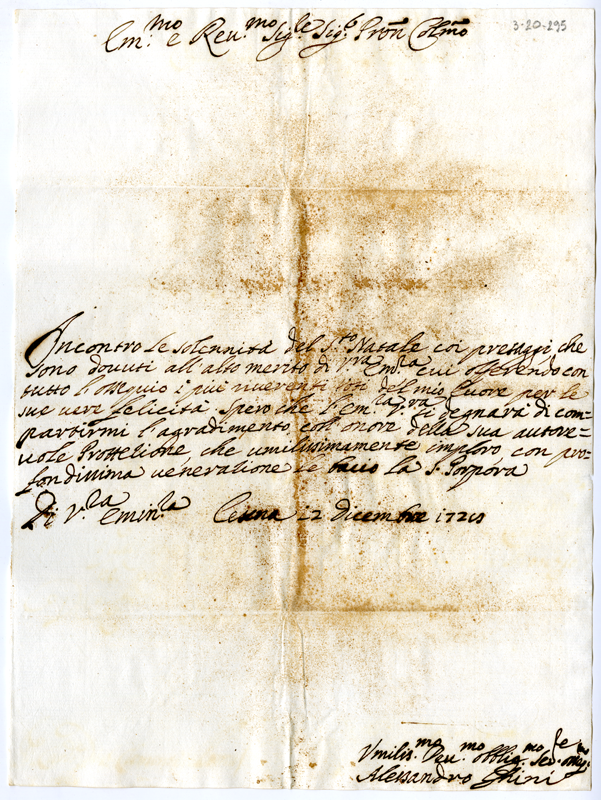 3-20-295
Em.mo e Reu.mo Sig.le Sig.e Pron Colmo
Incontro le solennità del S.to Natale coi pressagi che
sono douuti all'alto merito di V.ra Em.la cui offerendo con
tutto l'ossequio i più riuerenti voti del mio Cuore per le
sue uere felicità Spero che l'em.la V.ra si degnarà di com=
partirmi l'agradimento con onore della sua autore=
uole Prottetione, che umilissimamente imploro, con pro=
fondissima ueneratione le bacio la S. Porpora
Di V.ra Emin.la Cesena 22 dicembre
Vmilis.mo Deu.mo Obblig.mo
Alessandro Ghini